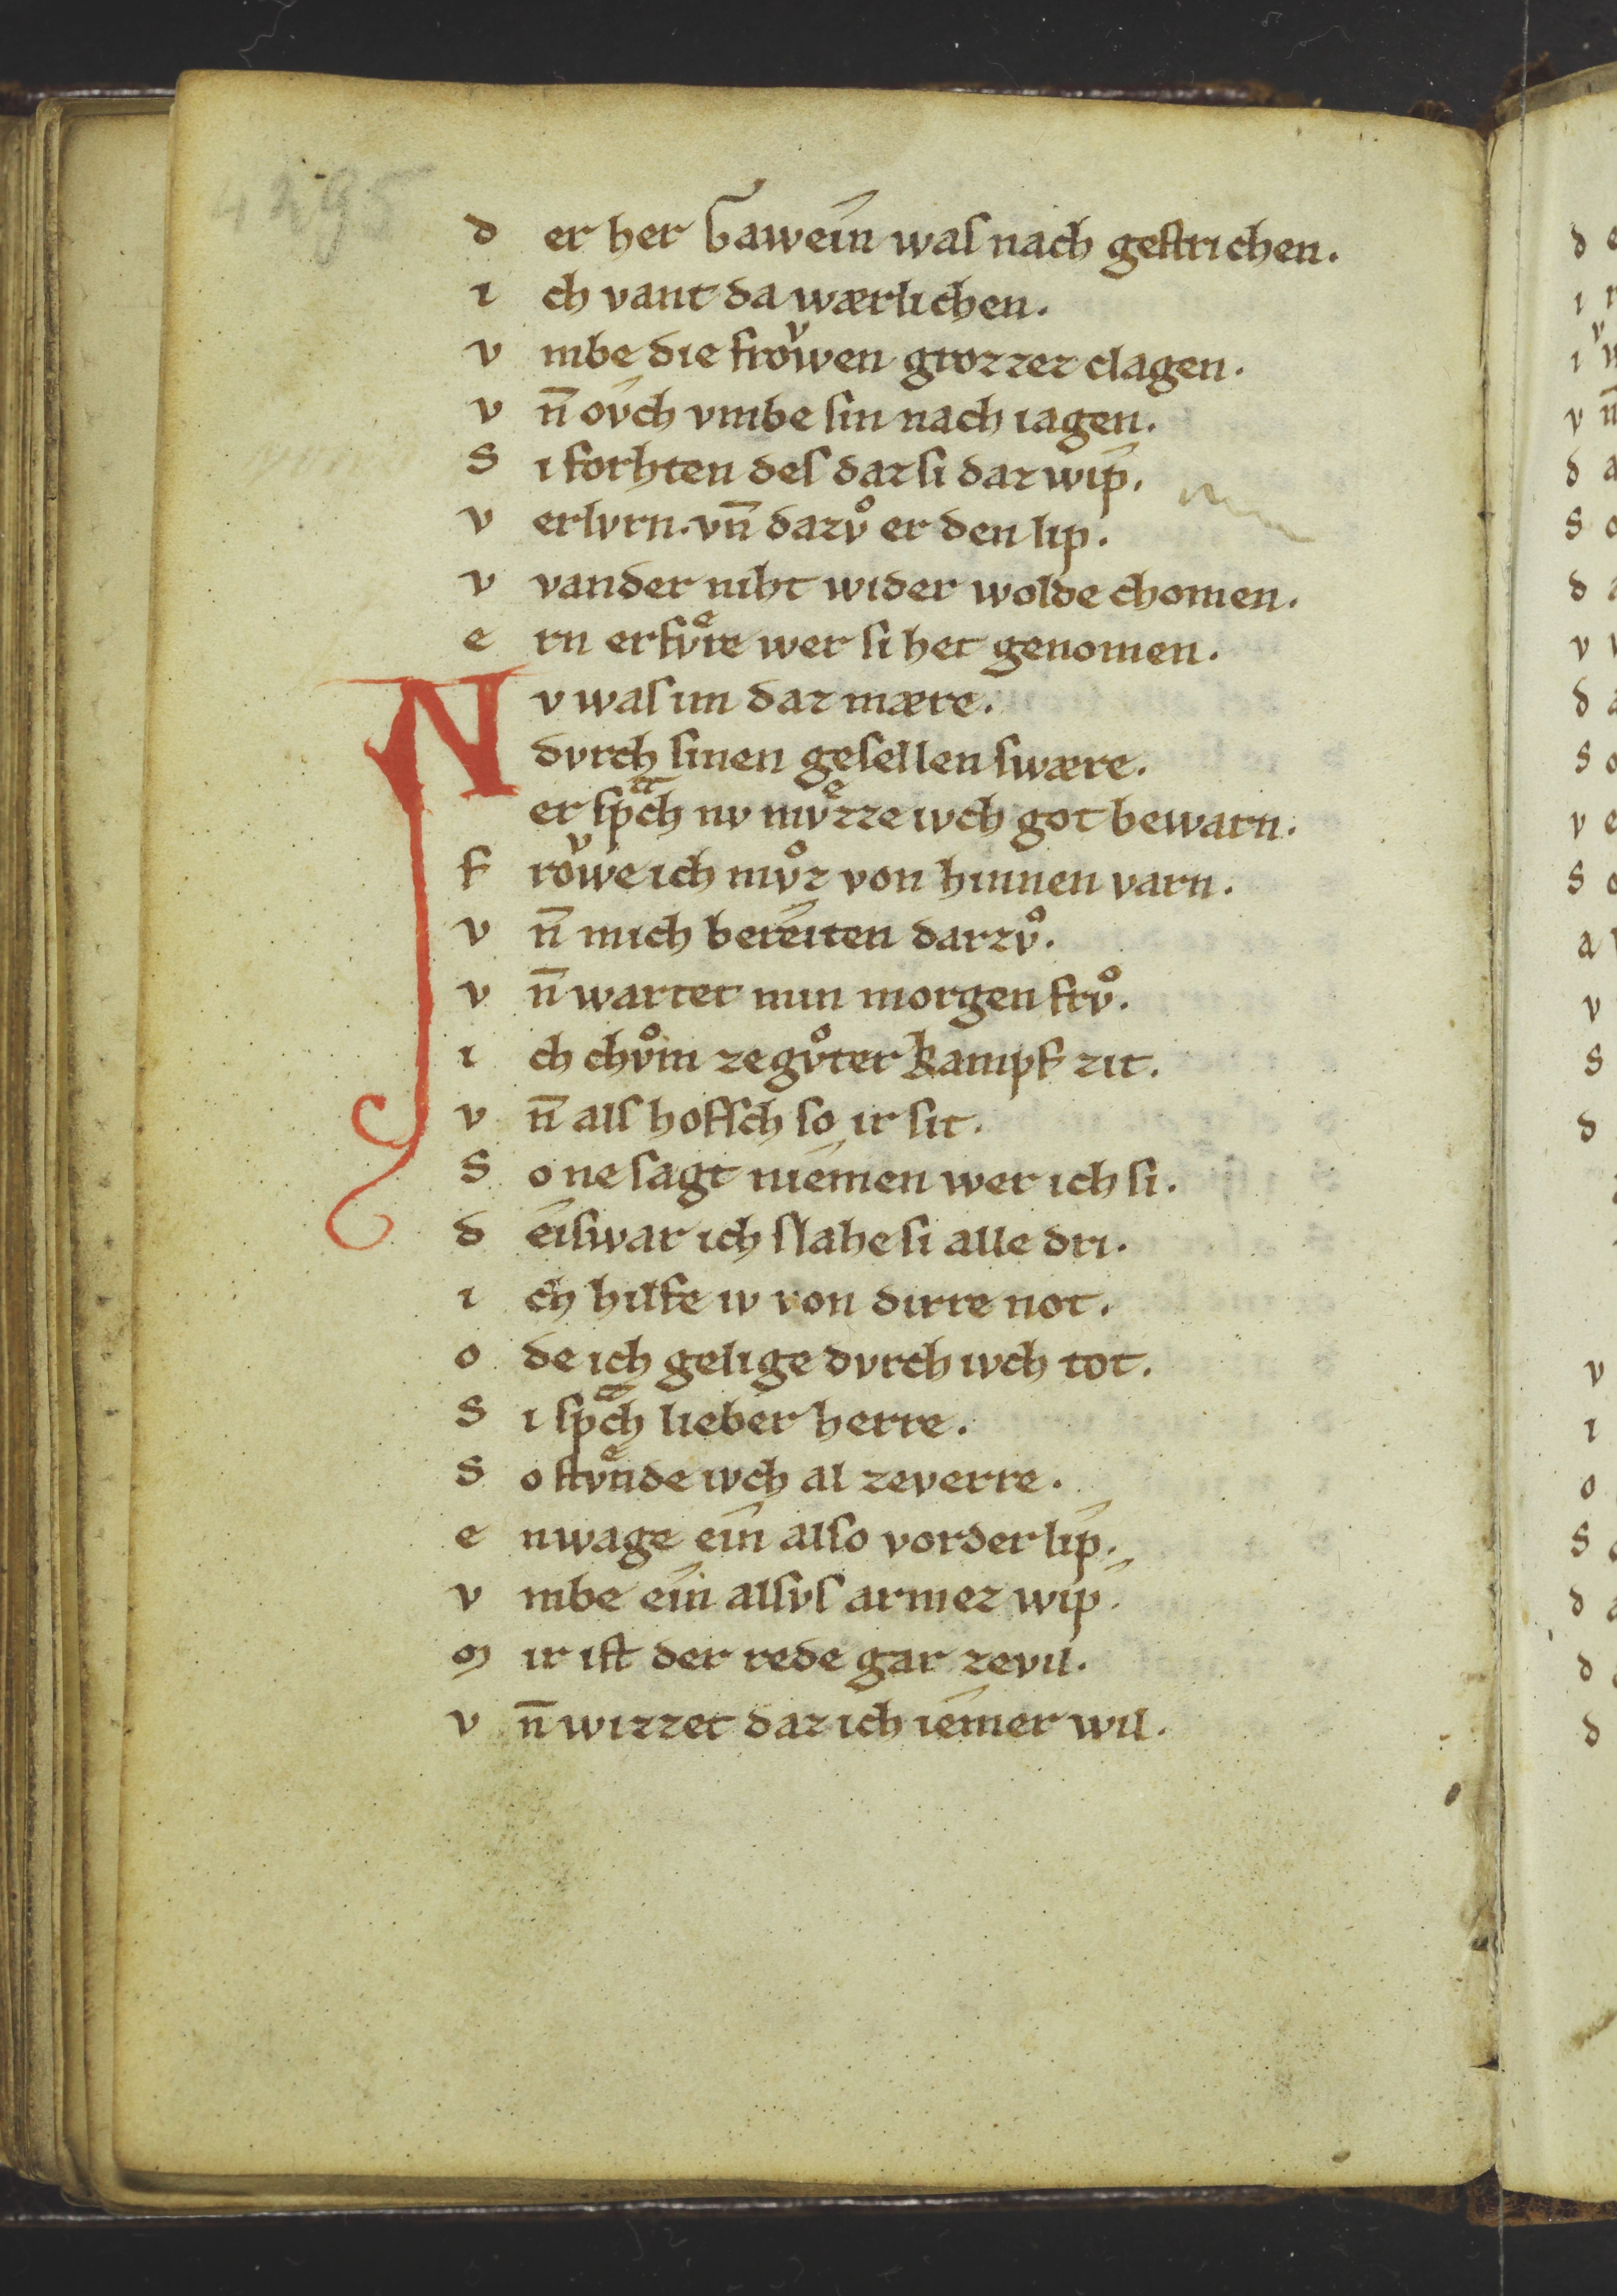 4295
d er her Gawein waſ nach geſtrichen.
i ch vant da wærlichen.
v mbe die froͮwen grozzez clagen.
v n̄ oͮch vmbe ſin nach iagen.
S i forhten deſ daz ſi daz wip.
v erlvrn. vn̄ dazvͦ er den lip.
v vander niht wider wolde chomen.
e rn erfvͤre wer ſi het genomen.
N v waſ im daz mære.
dvrch ſinen geſellen ſwære.
er ſpᵃch nv mvͤzze ivch got bewarn.
f roͮwe ich mvͦz von hinnen varn.
v n̄ mich bereiten darzvͦ.
v n̄ wartet min morgen frvͦ.
i ch chvͦm ze gvͦter kampf zit.
v n̄ alſ hofſch ſo ir ſit.
S o ne ſagt niemen wer ich ſi.
d eiſwar ich ſlahe ſi alle dri.
i ch hilfe iv von dirre not.
o de ich gelige dvrch ivch tot.
S i ſpᵃch lieber herre.
S o ſtvͤnde ivch al zeverre.
e nwage ein alſo vorder lip.
v mbe ein alſvſ armez wip.
m ir iſt der rede gar zevil.
v n̄ wizzet daz ich iemer wil.